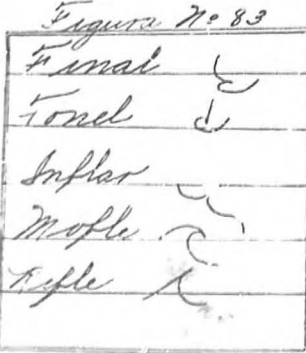 Figura No 83
Final
Tonel
Inflar
Mofle
Rifle